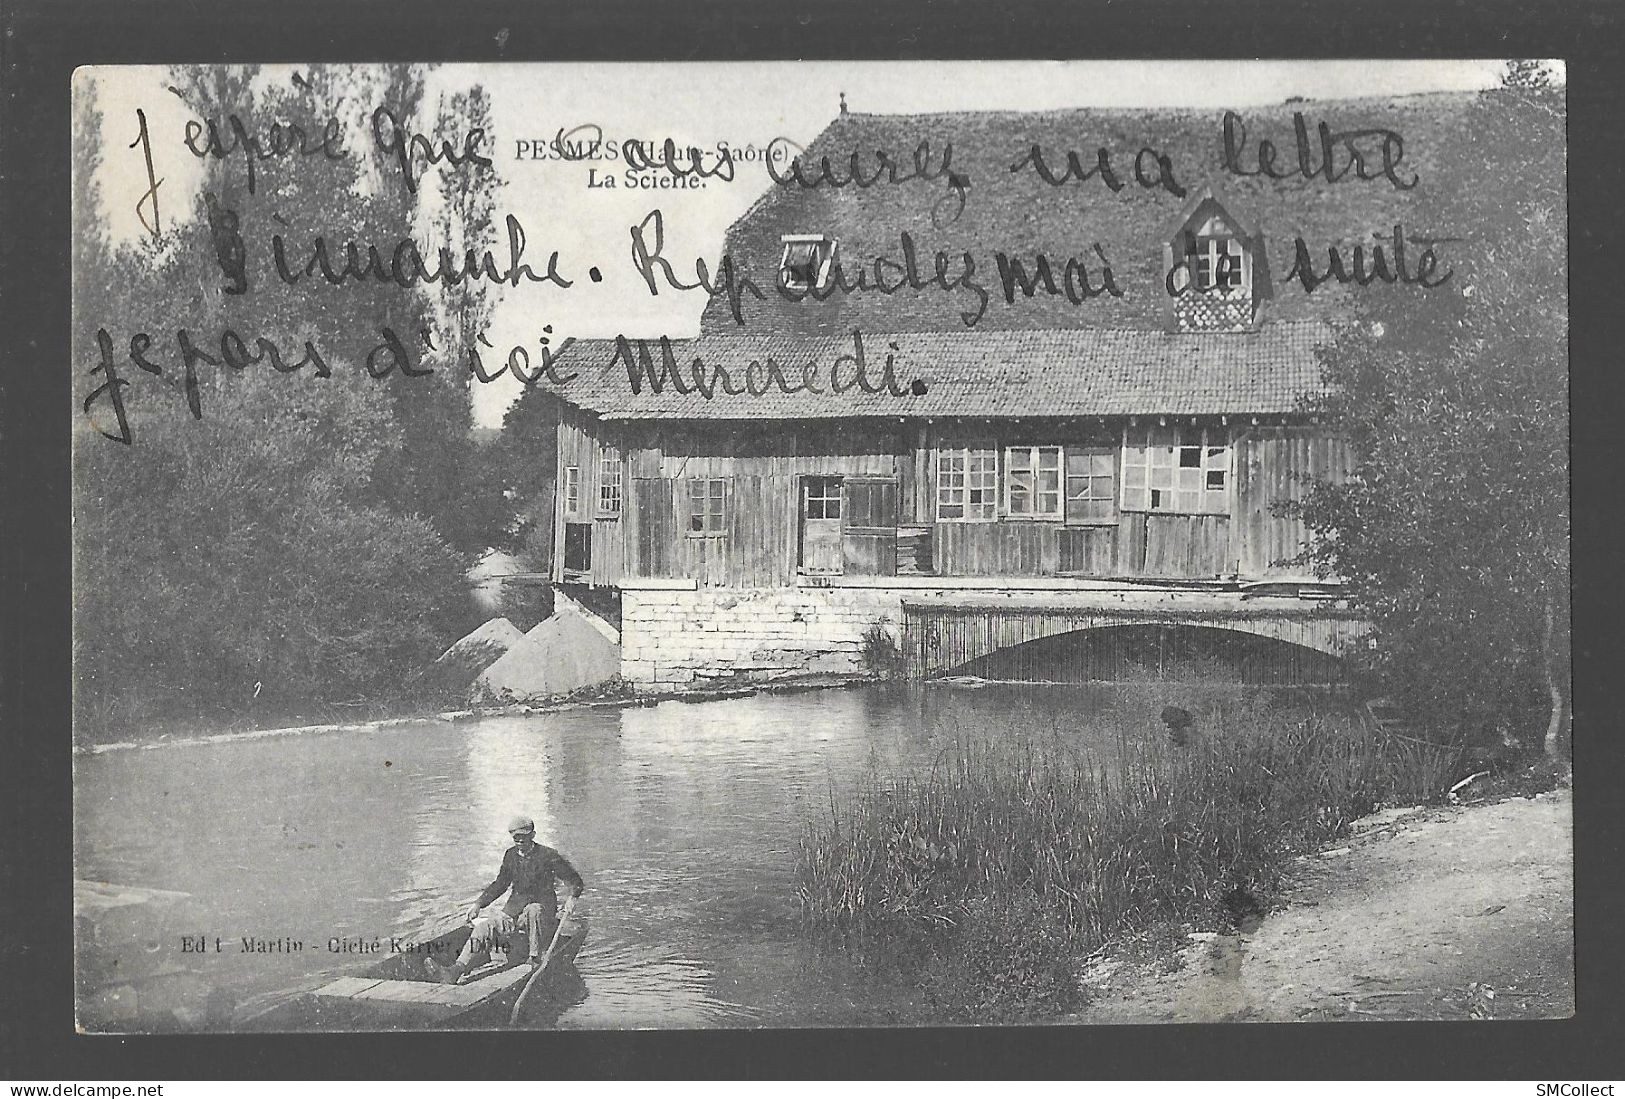 PESMES (Haute-Saône)
La Scierie.
j'espère que vous aurez ma lettre
Dimanche. Repondez moi de suite
je pars d'ici Mercredi.
Edit Martin - Cliché Karrer, Dôle
SMCollect